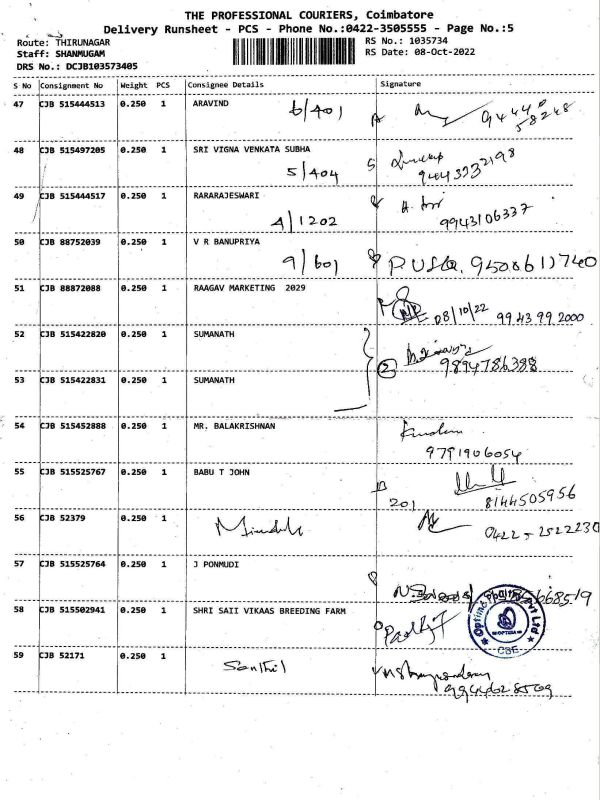 THE PROFESSIONAL COURIERS, Coimbatore
Delivery Runsheet - PCS - Phone No.:0422-3505555 - Page No.:5
Route: THIRUNAGAR RS No.: 1035734
Staff: SHANMUGAM RS Date: 08-Oct-2022
DRS No.: DCJB103573405
S No Consignment No Weight PCS Consignee Details Signature
47 CJB 515444513 0.250 1 ARAVIND 6/401 94440
58248
48 CJB 515497205 0.250 1 SRI VIGNA VENKATA SUBHA
5/404
49 CJB 515444517 0.250 1 RARARAJESWARI
A/1202 9943106337
50 CJB 88752039 0.250 1 V R BANUPRIYA
9/601
51 CJB 88872088 0.250 1 RAAGAV MARKETING 2029
08/10/22 99 43 99 2000
52 CJB 515422820 0.250 1 SUMANATH
2 9894786388
53 CJB 515422831 0.250 1 SUMANATH
54 CJB 515452888 0.250 1 MR. BALAKRISHNAN
9791906054
55 CJB 515525767 0.250 1 BABU T JOHN
201 8144505956
56 CJB 52379 0.250 1
0422 - 2522230
57 CJB 515525764 0.250 1 J PONMUDI
58 CJB 515502941 0.250 1 SHRI SAII VIKAAS BREEDING FARM
CBE
59 CJB 52171 0.250 1 Senthil